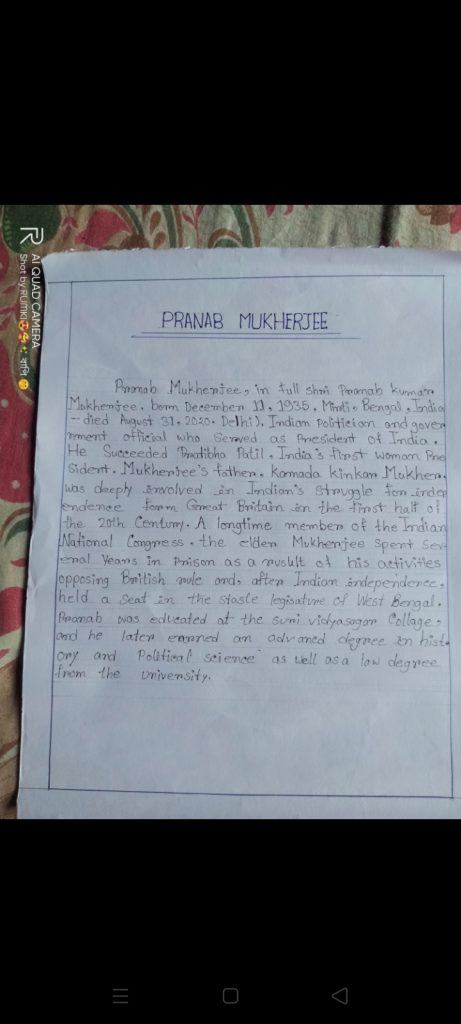 PRANAB MUKHERJEE
Pranab Mukherjee, in full shri Pranab kumar
Mukherjee. born December 11, 1935. Mirti, Bengal, India
- died August 31, 2020. Delhi). Indian Politician and gover
nment official who Served as President of India.
He Succeeded Pratibha Patil, India's first woman Pre
sident. Mukherjee's father, Kamada kinkar Mukher.
was deeply involved in Indian's Struggle for indep
endence form Great Britain in the first half of
the 20th Century. A longtime member of the Indian
National Congress. the elder Mukherjee Spent Sev
eral Years in Prison as a rusult of his activities
opposing British rule and, after Indian independence,
held a Seat in the staste legisature of West Bengal.
Pranab was educated at the suri vidyasagar Collage,
and he later earned an advanced degree in hist
ory and Political science as well as a law degree
from the university.
AI QUAD CAMERA
Shot by RUMKI